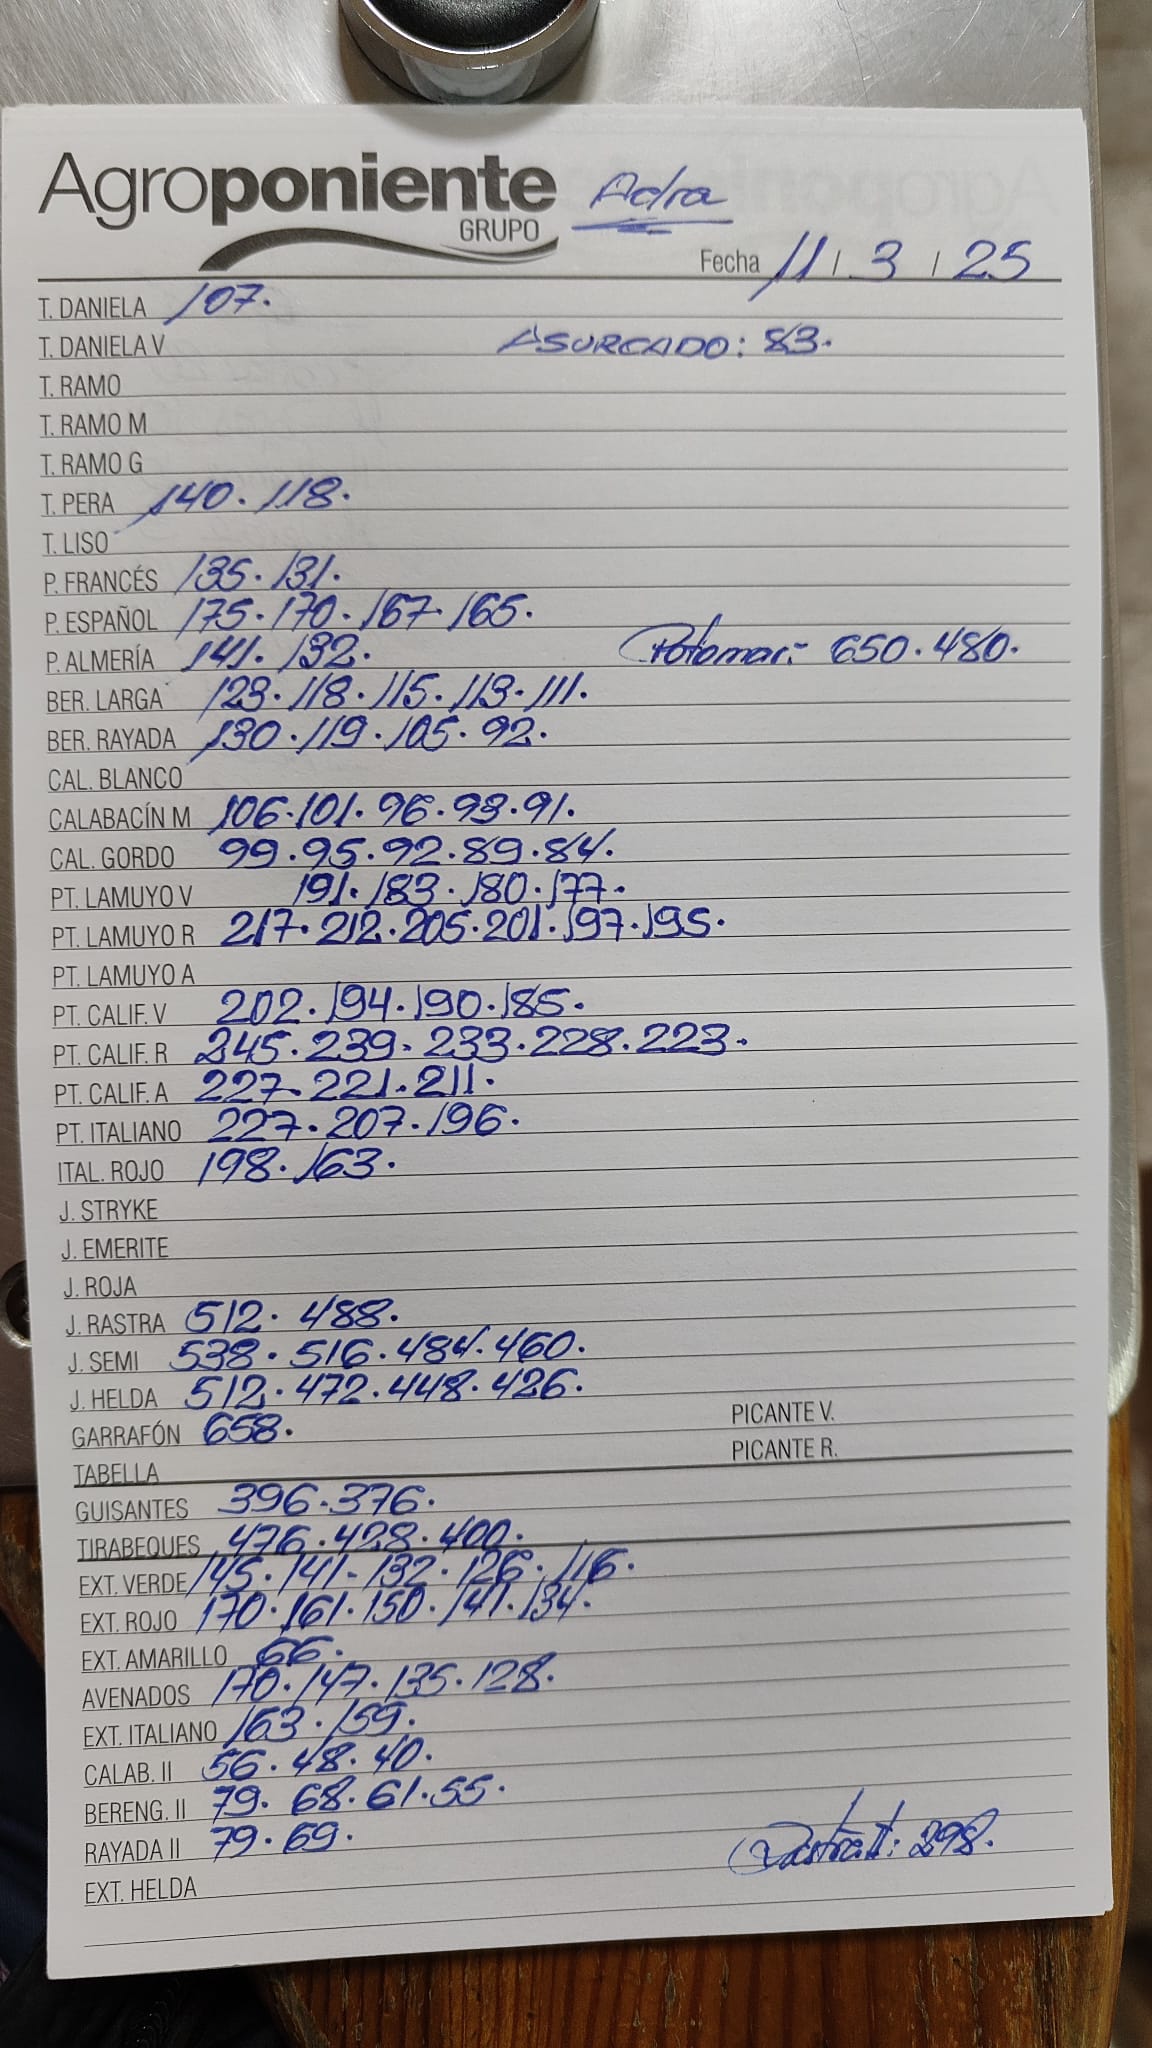 Agroponiente Adra
GRUPO
Fecha 11 / 3 / 25
T. DANIELA 107.
T. DANIELA V ASURCADO: 83.
T. RAMO
T. RAMO M
T. RAMO G
T. PERA 140. 118.
T. LISO
P. FRANCÉS 135. 131.
P. ESPAÑOL 175. 170. 167. 165.
P. ALMERÍA 141. 132. Potomac: 650. 480.
BER. LARGA 123. 118. 115. 113. 111.
BER. RAYADA 130. 119. 105. 92.
CAL. BLANCO
CALABACÍN M 106. 101. 96. 93. 91.
CAL. GORDO 99. 95. 92. 89. 84.
PT. LAMUYO V 191. 183. 180. 177.
PT. LAMUYO R 217. 212. 205. 201. 197. 195.
PT. LAMUYO A
PT. CALIF. V 202. 194. 190. 185.
PT. CALIF. R 245. 239. 233. 228. 223.
PT. CALIF. A 227. 221. 211.
PT. ITALIANO 227. 207. 196.
ITAL. ROJO 198. 163.
J. STRYKE
J. EMERITE
J. ROJA
J. RASTRA 512. 488.
J. SEMI 538. 516. 484. 460.
J. HELDA 512. 472. 448. 426.
GARRAFÓN 658. PICANTE V.
TABELLA PICANTE R.
GUISANTES 396. 376.
TIRABEQUES 476. 428. 400.
EXT. VERDE 145. 141. 132. 126. 116.
EXT. ROJO 170. 161. 150. 141. 134.
EXT. AMARILLO 66.
AVENADOS 170. 147. 135. 128.
EXT. ITALIANO 163. 159.
CALAB. II 56. 48. 40.
BERENG. II 79. 68. 61. 55.
RAYADA II 79. 69. Rastra II: 298.
EXT. HELDA